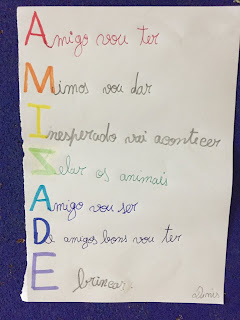 Amigo vou ter
Mimos vou dar
Inesperado vai acontecer
Zelar os animais
Amigo vou ser
De amigos bons vou ter
E brincar